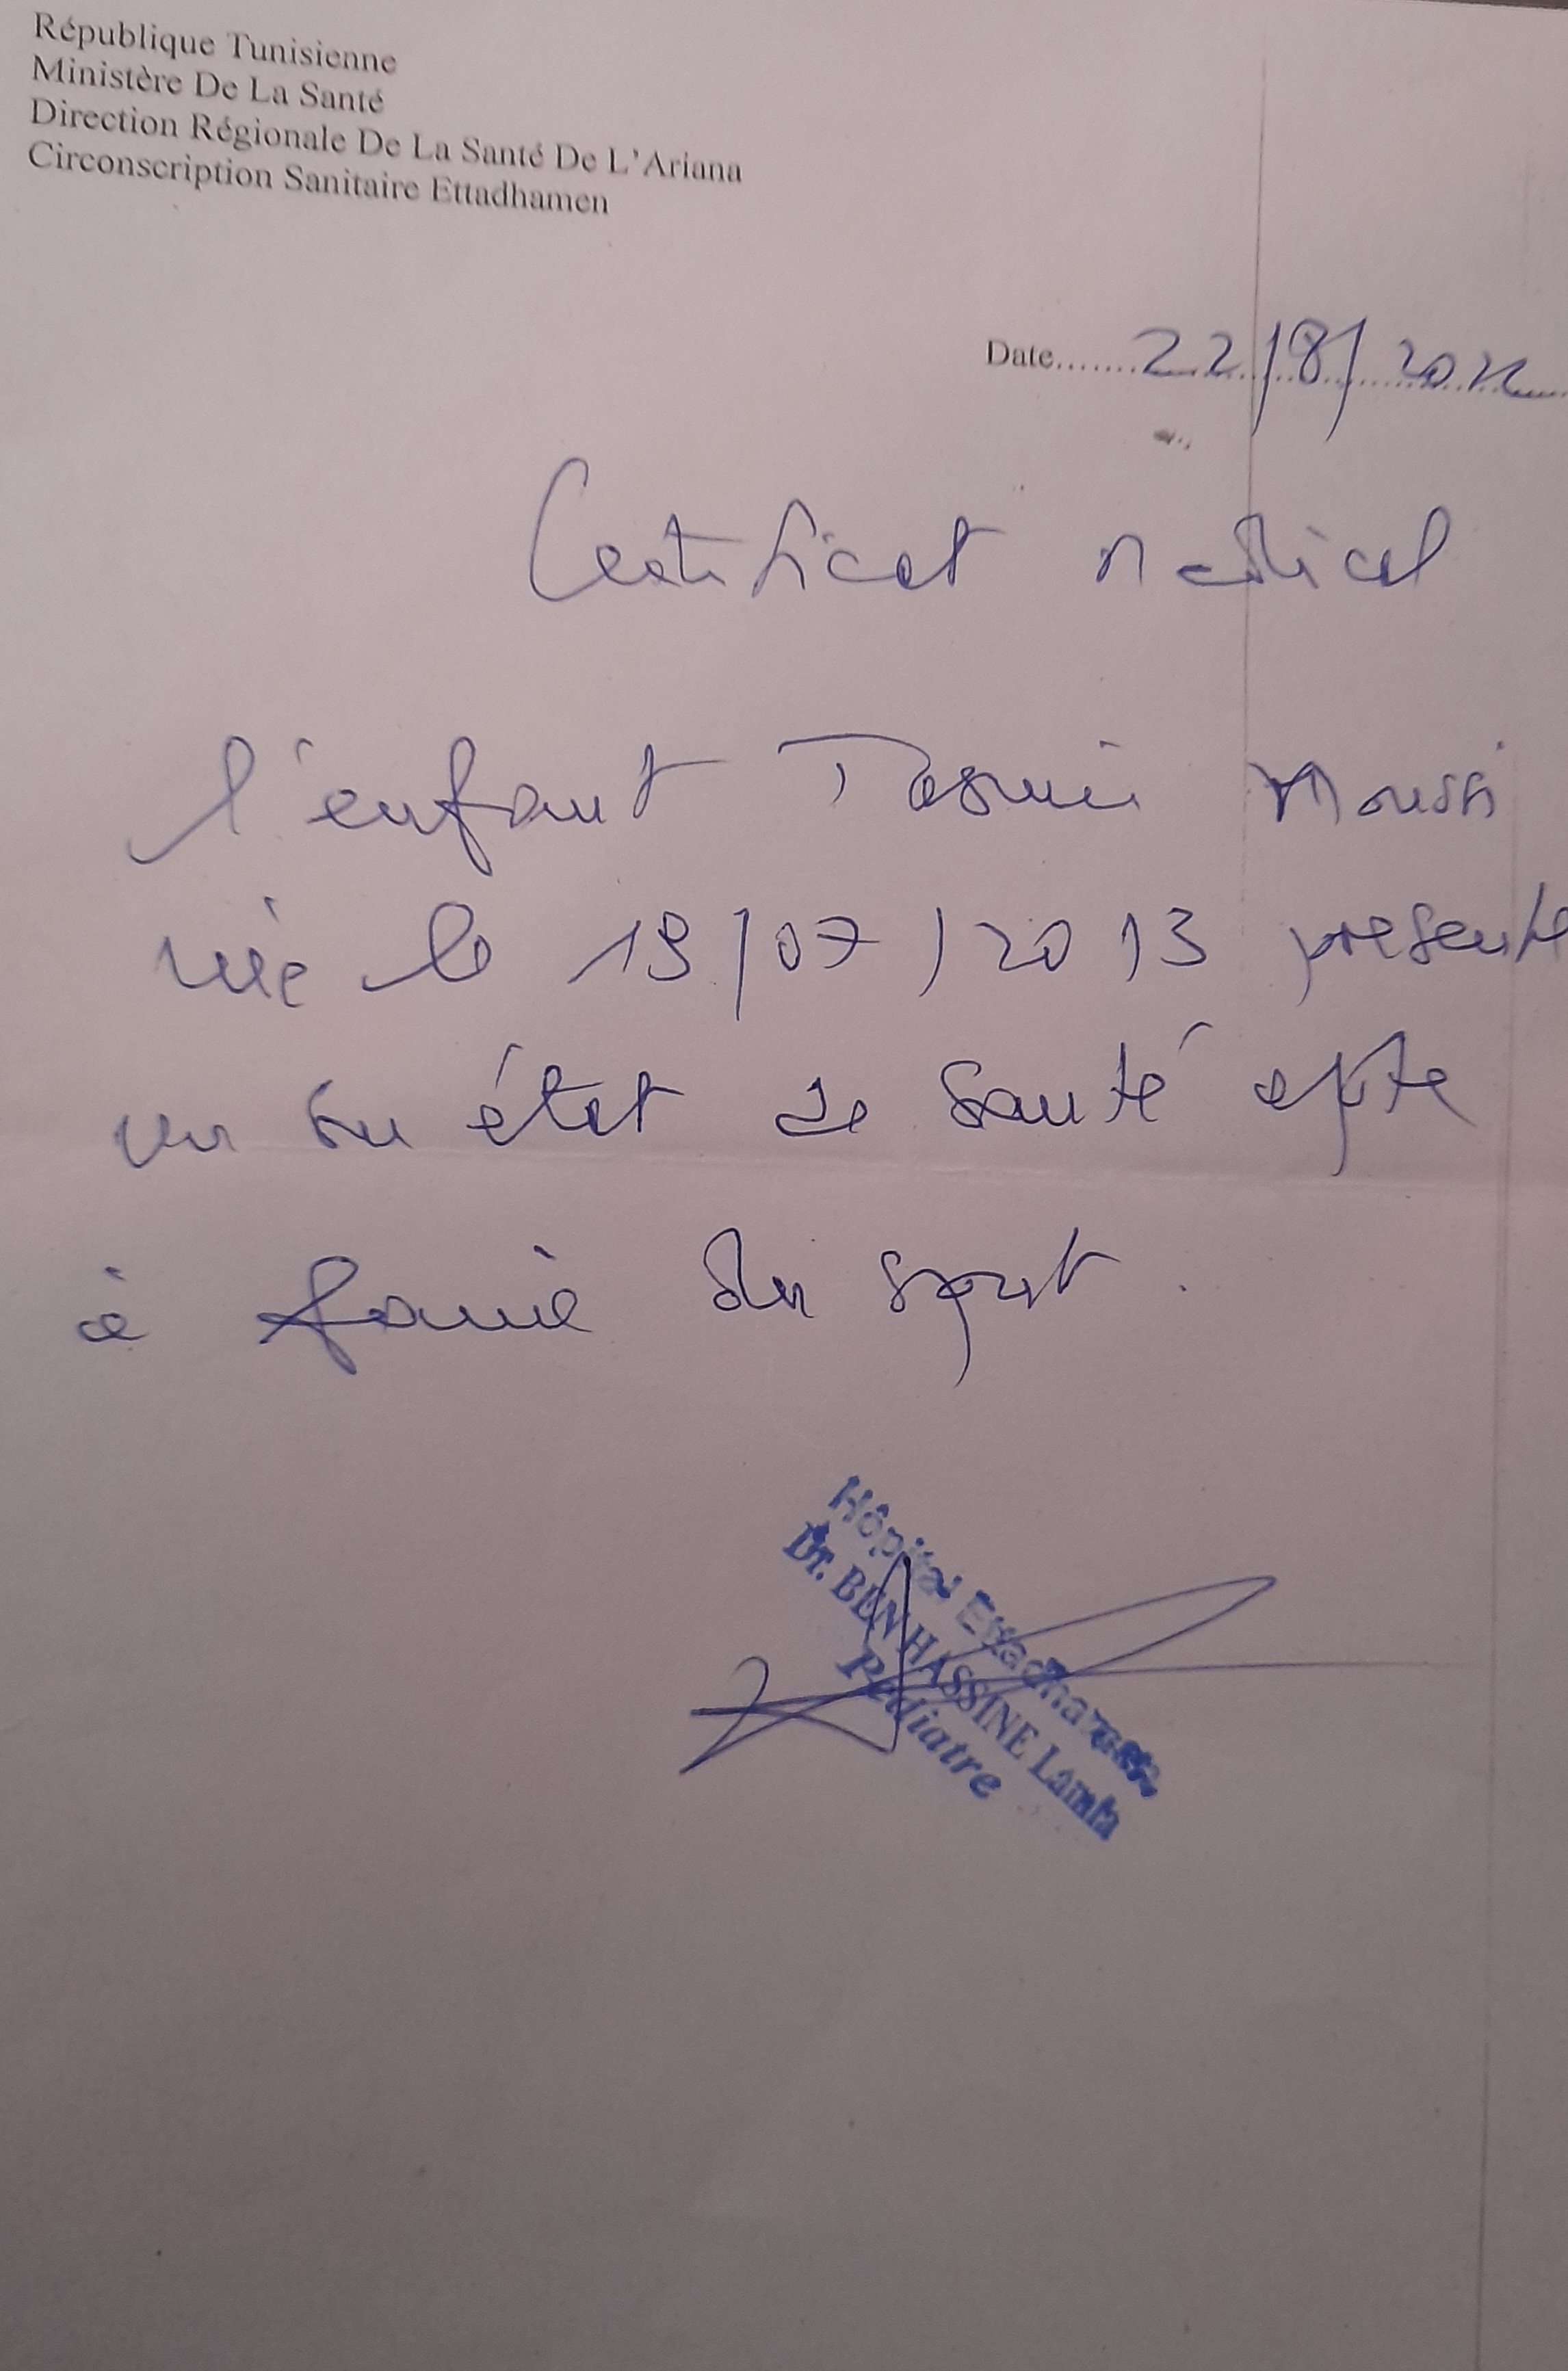 République Tunisienne
Ministère De La Santé
Direction Régionale De La Santé De L'Ariana
Circonscription Sanitaire Ettadhamen
Date.......22/8/2022
Certificat medical
l'enfant Tasnim Moussi
née le 19/07/2013 presente
un bon état de santé apte
à faire du sport.
Hôpital Ettadhamen
Dr. BEN HASSINE Lamia
Pédiatre